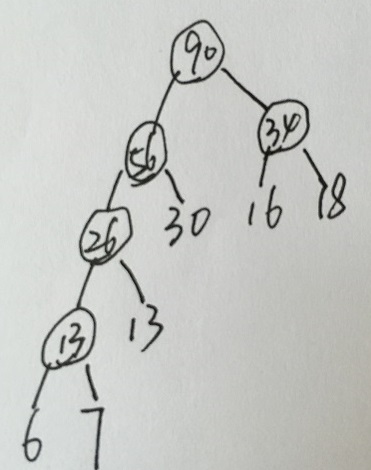 90
56 34
26 30 16 18
13 13
6 7